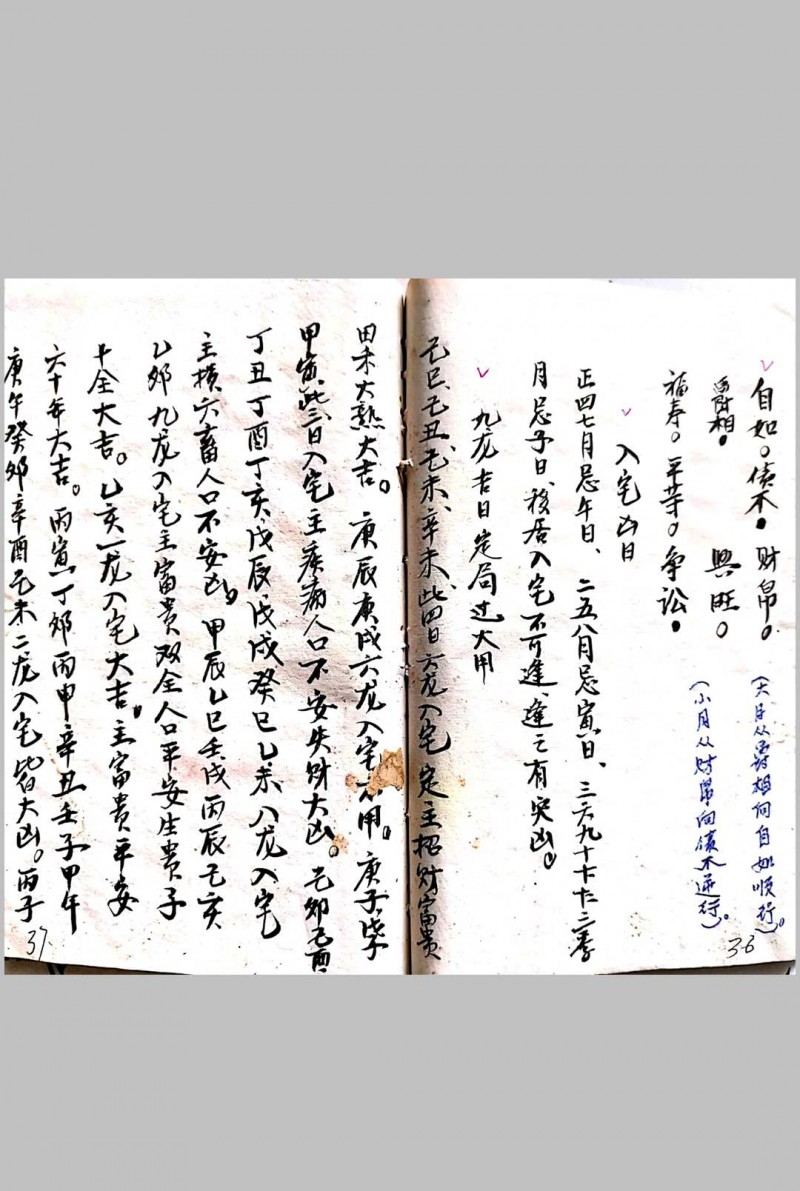 自如。债木。财帛。
爵相。興旺。
福寿。平等。争讼。
(大月从爵相向自如顺行)。
(小月从财帛向债木逆行)。
入宅凶日
正四七月忌午日、二五八月忌寅日、三六九十十十二季
月忌子日、移居入宅不可逢、逢之有灾凶。
九龙吉日定局过大用
己巳、乙丑、乙未、辛未、此四日六龙入宅定主招财富贵
36
田禾大熟大吉。庚辰庚戌六龙入宅不用。庚子
甲寅、此三日入宅主疾病人口不安失财大凶。己卯己酉
丁丑丁酉丁亥、戊辰、戊戌癸巳乙未八龙入宅
主横六畜人口不安凶。甲辰乙巳壬戌丙辰乙亥
乙卯九龙入宅主富贵双全人口平安生贵子
十全大吉。乙亥一龙入宅大吉。主富贵平安
六十年大吉。丙寅丁卯丙申辛丑壬子甲午
庚午癸卯辛酉己未二龙入宅皆大凶。丙子
37